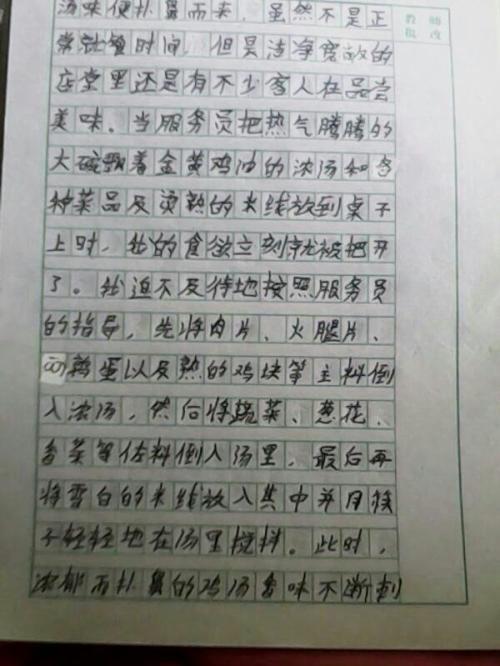 汤味便扑鼻而来，虽然不是正
常就餐时间，但是洁净宽敞的
店堂里还是有不少客人在品尝
美味。当服务员把热气腾腾的
大碗飘着金黄鸡油的浓汤和各
种菜品及烫熟的米线放到桌子
上时，我的食欲立刻就被把开
了。我迫不及待地按照服务员
的指导，先将肉片、火腿片、
鹌鹑蛋以及熟的鸡块等主料倒
入浓汤，然后将蔬菜、葱花、
香菜等佐料倒入汤里，最后再
将雪白的米线放入其中并用筷
子轻轻地在汤里搅拌。此时，
浓郁而扑鼻的鸡汤香味不断刺
教师
批改